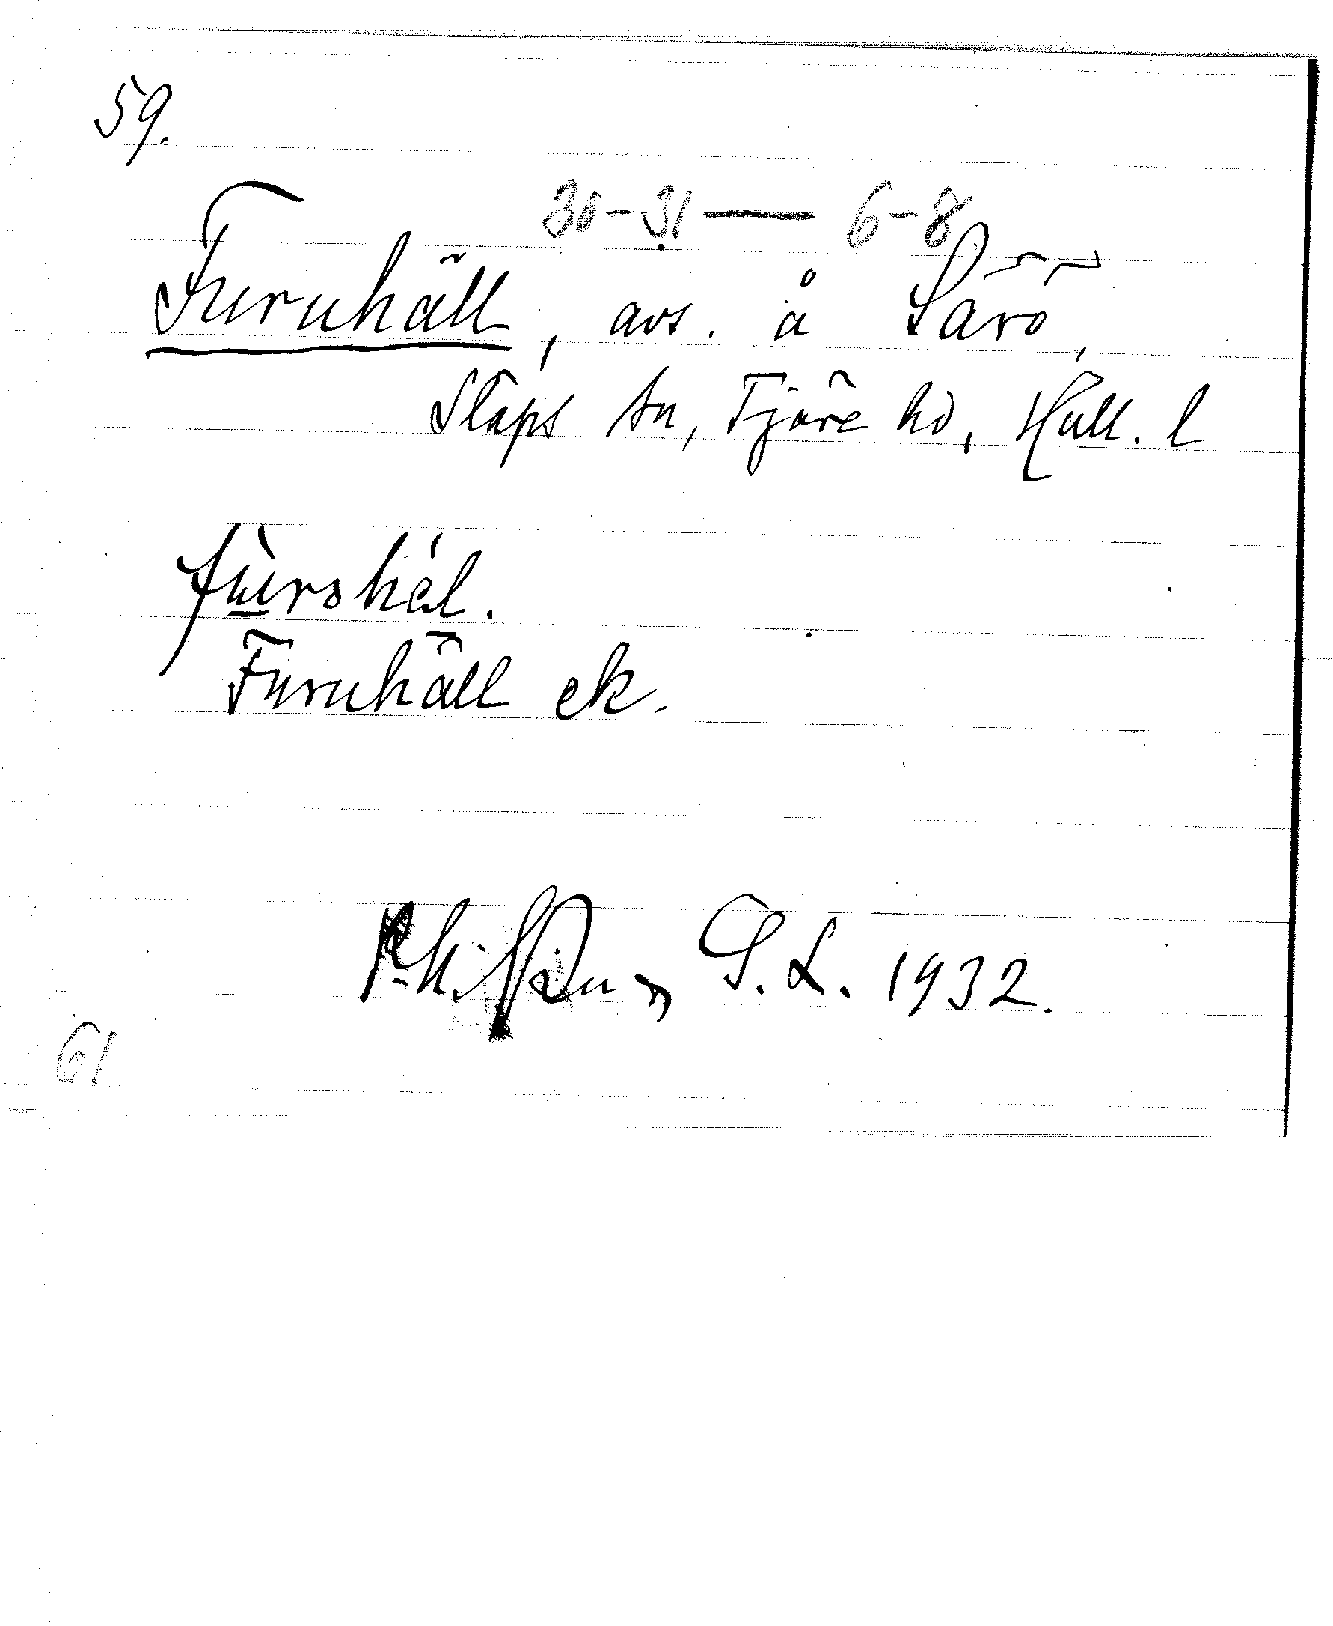 59.
30-31 — 6-8
Furuhäll, avs. å Särö,
Släps sn, Fjäre hd, Hall. l
Furuhäll ek.
S. L. 1932.
61